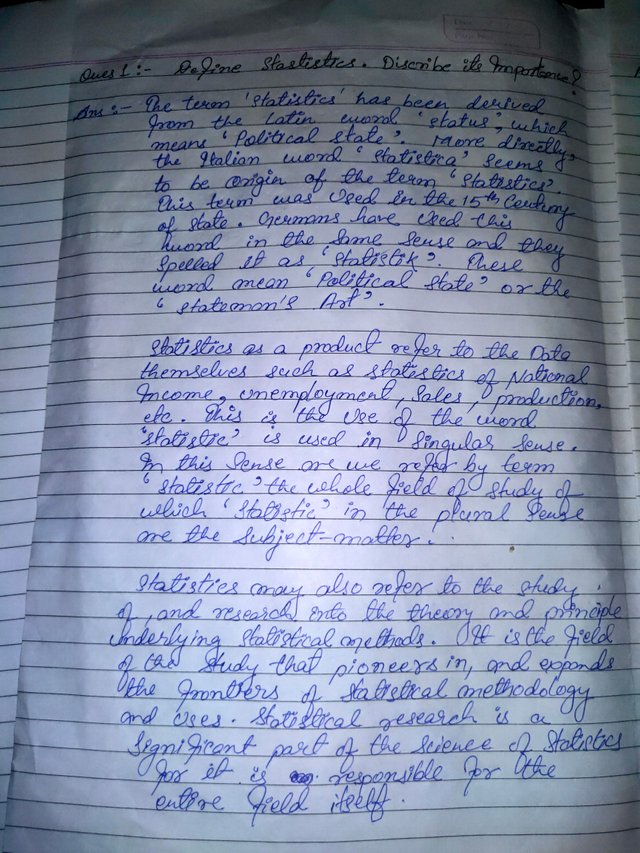 Ques 1:- Define Stastistics. Discribe its Importance?
Ans :- The term 'statistics' has been derived
from the Latin word 'status', which
means 'Political state'. More directly,
the Italian word 'Statistica' seems
to be origin of the term 'Statistics'.
This term was used in the 15th Century
of state. Germans have used this
word in the same sense and they
spelled it as 'Statistik'. These
word mean 'Political state' or the
'statemon's Art'.
Statistics as a product refer to the Data
themselves such as statistics of National
Income, unemployment, Sales, production,
etc. This is the use of the word
'statistic' is used in singular sense.
In this sense are we refer by term
'statistic' the whole field of study of
which 'statistic' in the plural sense
are the subject-matter.
Statistics may also refer to the study
of, and research into the theory and principle
underlying statistical methods. It is the field
of the study that pioneers in, and expands
the frontiers of statistical methodology
and uses. Statistical research is a
significant part of the science of statistics
for it is responsible for the
entire field itself.